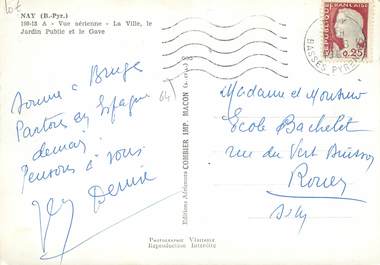 NAY (B.-Pyr.)
193-13 A - Vue aérienne - La Ville, le
Jardin Public et le Gave
sommes à Bruges
Partons en Espagne
demain.
Pensons à vous
Denise
64
Editions Aériennes COMBIER IMP. MACON (S.-et-L.)
REPUBLIQUE FRANCAISE
0,25
BASSES PYRENEES
Madame et Monsieur
Ecole Bachelet
rue du Vert Buisson
Rouen
S/M
Photographie Véritable
Reproduction Interdite